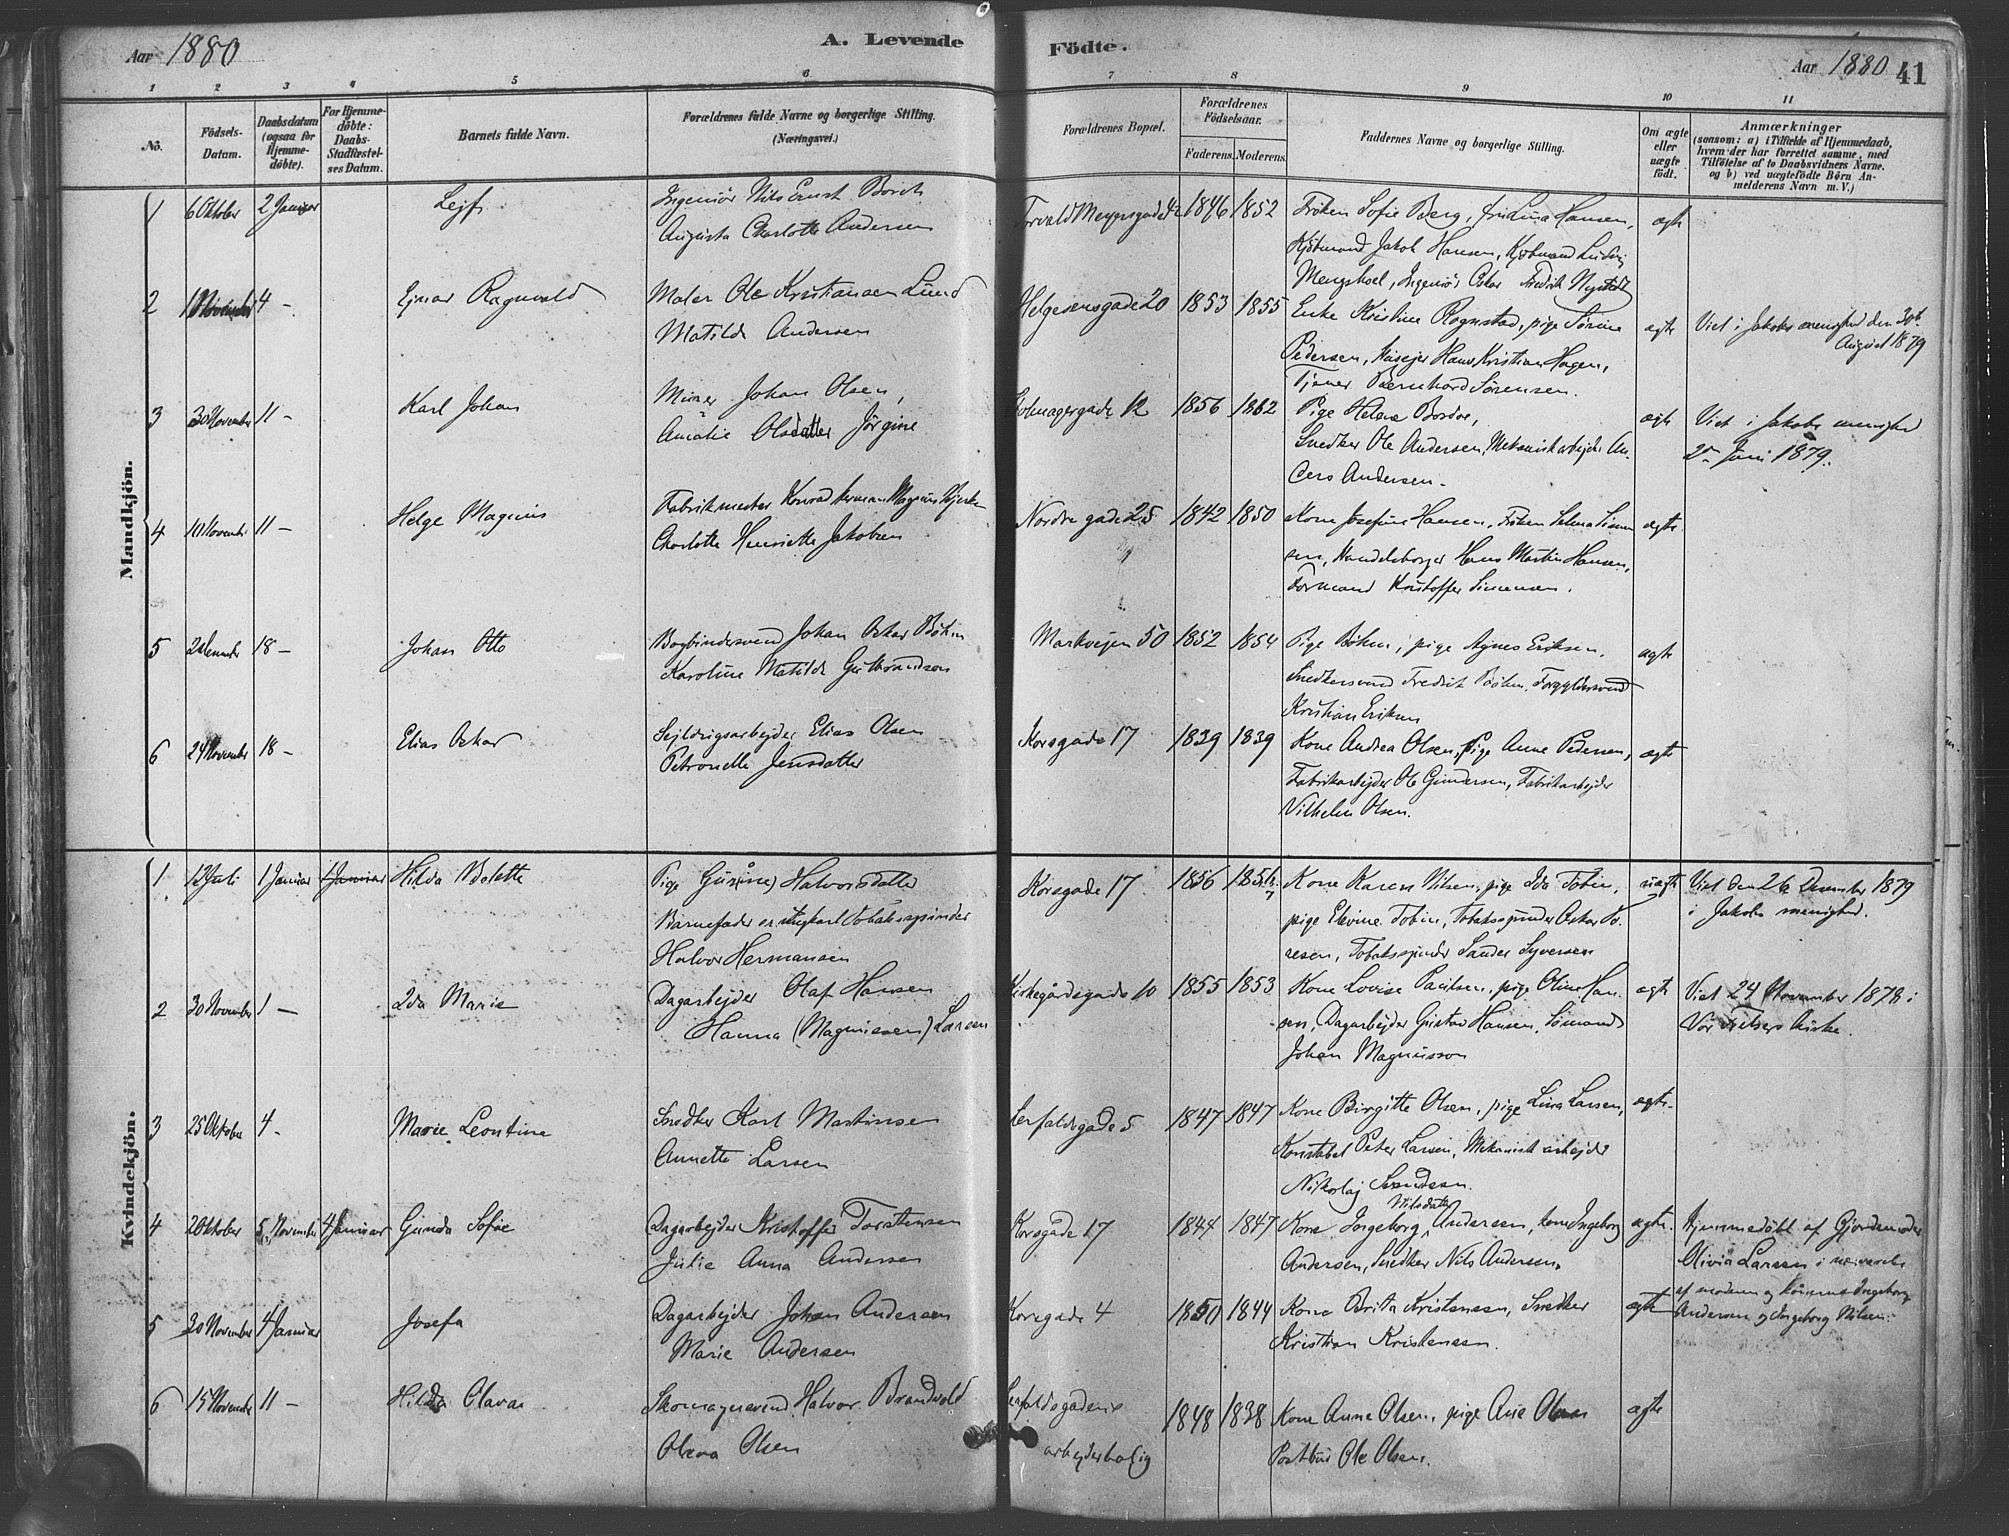 Aar 1880 A. Levende Födte. Aar 1880 41
1 2 3 4 5 6 7 8 9 10 11
No. Födsels-Datum. Daabsdatum (ogsaa for Hjemme-döbte). For Hjemme-döbte: Daabs-Stadfæstel-ses Datum. Barnets fulde Navn. Forældrenes fulde Navne og borgerlige Stilling. (Næringsvei.) Forældrenes Bopæl. Forældrenes Födselsaar. Faderens. Moderens. Faddernes Navne og borgerlige Stilling. Om ægte eller uægte födt. Anmærkninger (saasom: a) i Tilfælde af Hjemmedaab, hvem der har forrettet samme, med Tilföielse af to Daabsvidners Navne. og b) ved uægtefödte Börn An-melderens Navn m. V.)
Mandkjön.
1 6 Oktober 2 Januar Lejf Ingeniör Nils Ernst Borch Torvald Meyersgade 42 1846 1852 Fröken Sofie Berg, fru Lina Hansen, ægte
Augusta Charlotte Andersen Kjöbmand Jakob Hansen, Kjöbmand Ludvig
Mengshoel, Ingeniör Oskar Fredrik Nystedt
2 November 4 - Ejnar Ragnvald Maler Ole Kristiansen Lund Helgesensgade 20 1853 1855 Enke Kristine Rognstad, pige Sörine ægte Viet i Jakobs menighed den 30te
Matilde Andersen Pedersen, Husejer Hans Kristian Hagen, August 1879
Tjener Bernhard Sörensen.
3 30 November 11 - Karl Johan Murer Johan Olsen, 12 1856 1862 Pige Helene ægte Viet i Jakobs menighed
Amalie Olsdatter Jörgine Snedker Ole Andersen, Mekanisk arbejder An-
ders Andersen. Juni 1879.
4 10 November 11 - Helge Magnus Fabrikmester Konrad Herman Magnus Nordre gade 25 1842 1850 Kone Josefine Hansen, Fröken Selma Simen ægte
Charlotte Henriette Jakobsen sen, Handelsborger Hans Martin Hansen,
Formand Kristoffer Simensen.
5 2 December 18 - Johan Otto Bogbindersvend Johan Oskar Böhm Markvejen 50 1852 1854 Pige Böhm, pige Agnes Eriksen. ægte
Karoline Matilde Gulbrandsen Snedkersvend Fredrik Böhm, Forgyldersvend
Kristian Eriksen
6 24 November 18 - Elias Oskar Sejldugsarbejder Elias Olsen Korsgade 17 1839 1839 Kone Andrea Olsen, Pige Anne Pedersen, ægte
Petronelle Jensdatter Fabrikarbejder Ole Gundersen, Fabrikarbejder
Vilhelm Olsen.
Kvindekjön.
1 12 Juli 1 Januar 1 Januar Hilda Bolette Pige Gu(rine) Halvorsdatter Korsgade 17 1856 Kone Karen Nilsen, pige Ida Tobin, uægte Viet den 26 December 1879
Barnefader er ungkarl Tobaksspinder pige Elevine Tobin, Tobaksspinder Oskar To- i Jakobs menighed.
Halvor Hermansen resen, Tobaksspinder Sander Syversen
2 30 November 1 - Ida Marie Dagarbejder Olaf Hansen Kirkegårdsgade 10 1855 1853 Kone Lovise Paulsen, pige Oline Han- ægte Viet 24 November 1878 i
Hanna (Magnussen) Larsen sen, Dagarbejder Gustav Hansen, Sömand Vor Frelsers Kirke.
Johan Magnusson
3 25 Oktober 4 - Marie Leontine Snedker Karl Martinsen Lerfaldsgade 5 1847 1847 Kone Birgitte Olsen, pige Lina Larsen, ægte
Annette Larsen Konstabel Peter Larsen, Mekanisk arbejder
Nikolaj Svendsen.
4 2 Oktober 5 November 4 Januar Gunda Sofie Dagarbejder Kristoffer Torstensen Korsgade 17 1844 1847 Kone Ingeborg Nilsdatter Andersen, kone Ingeborg ægte. Hjemmedöbt af Gjordemoder
Julie Anna Andersen Andersen, Snedker Nils Andersen. Olivia Larsen i nærværelse
af moderen og konerne Ingeborg
5 30 November 4 Januar Josefa Dagarbejder Johan Andersen Korsgade 4 1850 1844 Kone Brita Kristensen, Snedker ægte Andersen og Ingeborg Nilsen.
Marie Andersen Kristian Kristensen.
6 15 November 11 - Hilda Olava Skomagersvend Halvor Brandvold Lerfaldsgadens 1848 1838 Kone Anne Olsen, pige Ane Olsen ægte
Olava Olsen arbejderbolig Postbud Ole Olsen.